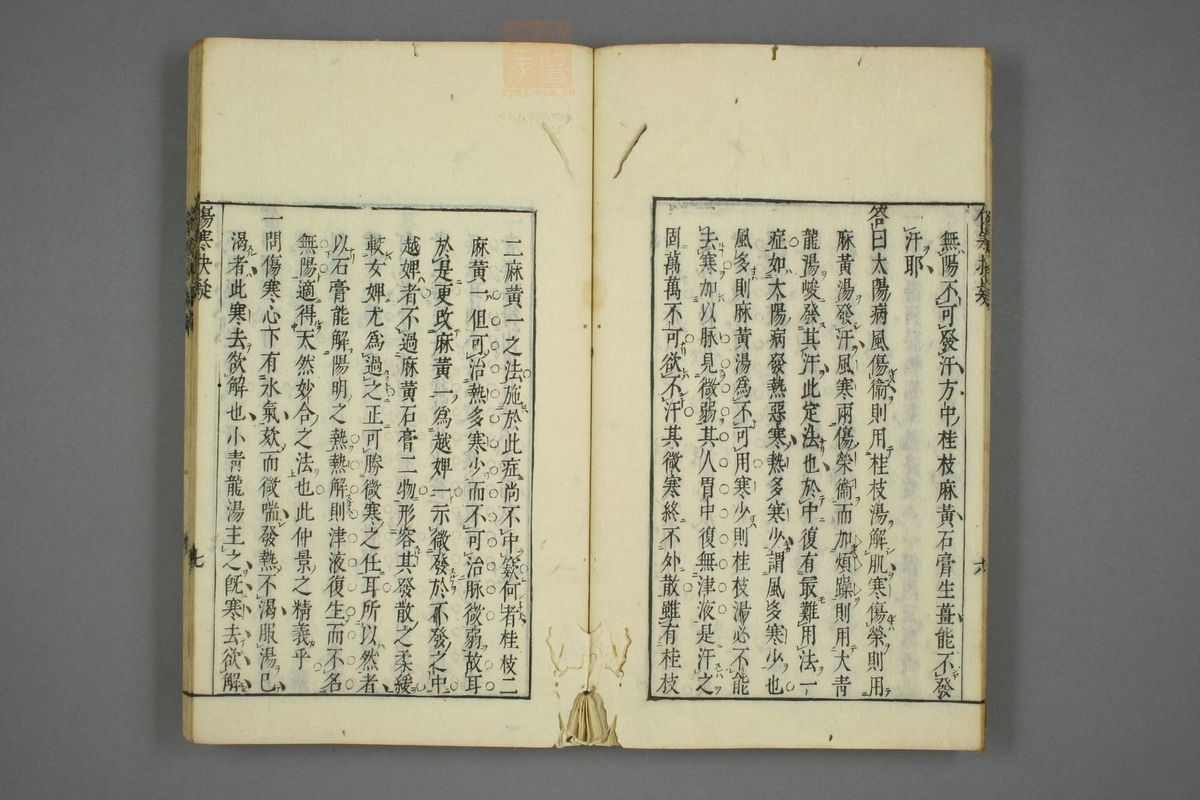 無陽不可發汗方中桂枝麻黃石膏生薑能不發
汗耶
答曰太陽病風傷衞則用桂枝湯解肌寒傷榮則用
麻黃湯發汗風寒兩傷榮衞而加煩躁則用大靑
龍湯峻發其汗此定法也於中復有最難用法一
症如太陽病發熱惡寒熱多寒少謂風多寒少也
風多則麻黃湯為不可用寒少則桂枝湯必不能
去寒加以脉見微弱其人胃中復無津液是汗之
固萬萬不可欲不汗其微寒終不外散雖有桂枝
六
二麻黃一之法施於此症尚不中窽何者桂枝二
麻黃一但可治熱多寒少而不可治脉微弱故耳
於是更改麻黃一為越婢一示微發於不發之中
越婢者不過麻黃石膏二物形容其發散之柔緩
較女婢尤為過之正可勝微寒之任耳所以然者
以石膏能解陽明之熱熱解則津液復生而不名
無陽適得天然妙合之法也此仲景之精義乎
一問傷寒心下有水氣欬而微喘發熱不渴服湯已
渴者此寒去欲解也小青龍湯主之旣寒去欲解
傷寒抉疑
七
zysj.com.cn